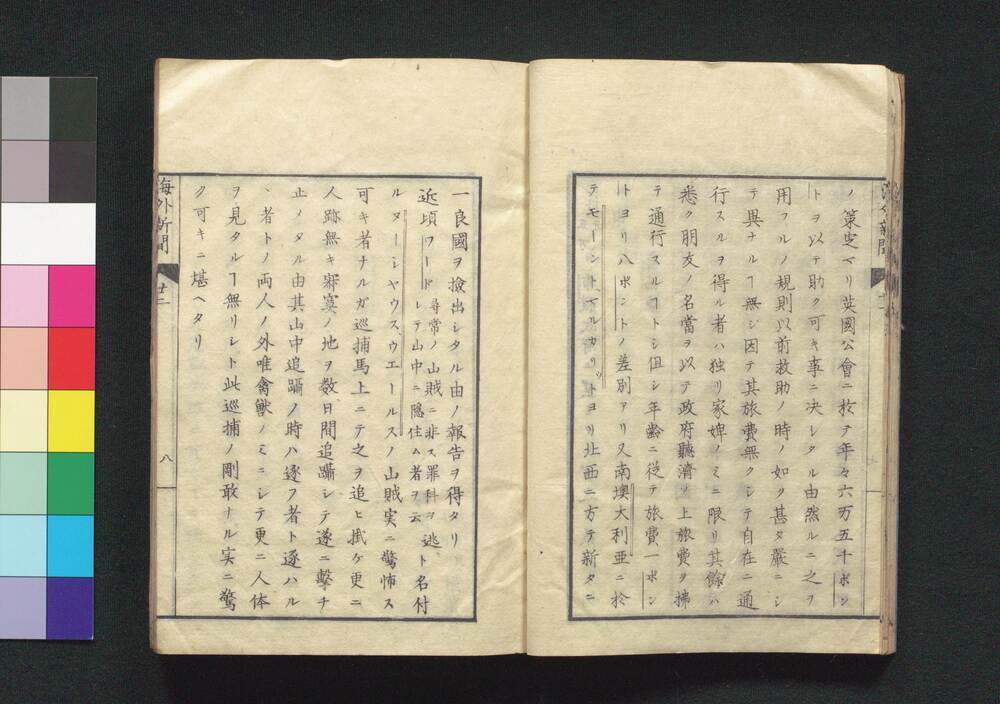 ノ策史ベリ英國公會ニ於テ年々六万五千ポン
トヲ以テ助ク可キ事ニ决シタル由然ルニ之ヲ
用フルノ規則以前救助ノ時ノ如ク甚タ嚴ニシ
テ異ナルヿ無シ因テ其旅費無クシテ自在ニ通
行スルヲ得ル者ハ独リ家婢ノミニ限リ其餘ハ
悉ク朋友ノ名當ヲ以テ政府聽濟ノ上旅費ヲ拂
テ通行スルヿトシ但シ年齡ニ従テ旅費一ポン
トヨリ八ポントノ差別アリ又南墺大利亜ニ於
テモーントマルカリットヨリ北西ニ方テ新タニ
一良國ヲ撿出シタル由ノ報告ヲ得タリ
近頃フード尋常ノ山賊ニ非ス罪科ヲ逃レテ山中ニ隠住ム者ヲ云ト名付
ルヌーシヤウスウエールスノ山賊実ニ驚怖ス
可キ者ナルガ巡捕馬上ニテ之ヲ追ヒ掛ケ更ニ
人跡無キ寂寞ノ地ヲ数日間追躡シテ遂ニ擊チ
止メタル由其山中追躡ノ時ハ逐フ者ト逐ハル
ヽ者トノ両人ノ外唯禽獣ノミニシテ更ニ人体
ヲ見タルヿ無リシト此巡捕ノ剛敢ナル実ニ驚
ク可キニ堪ヘタリ
海外新聞
廿二
八